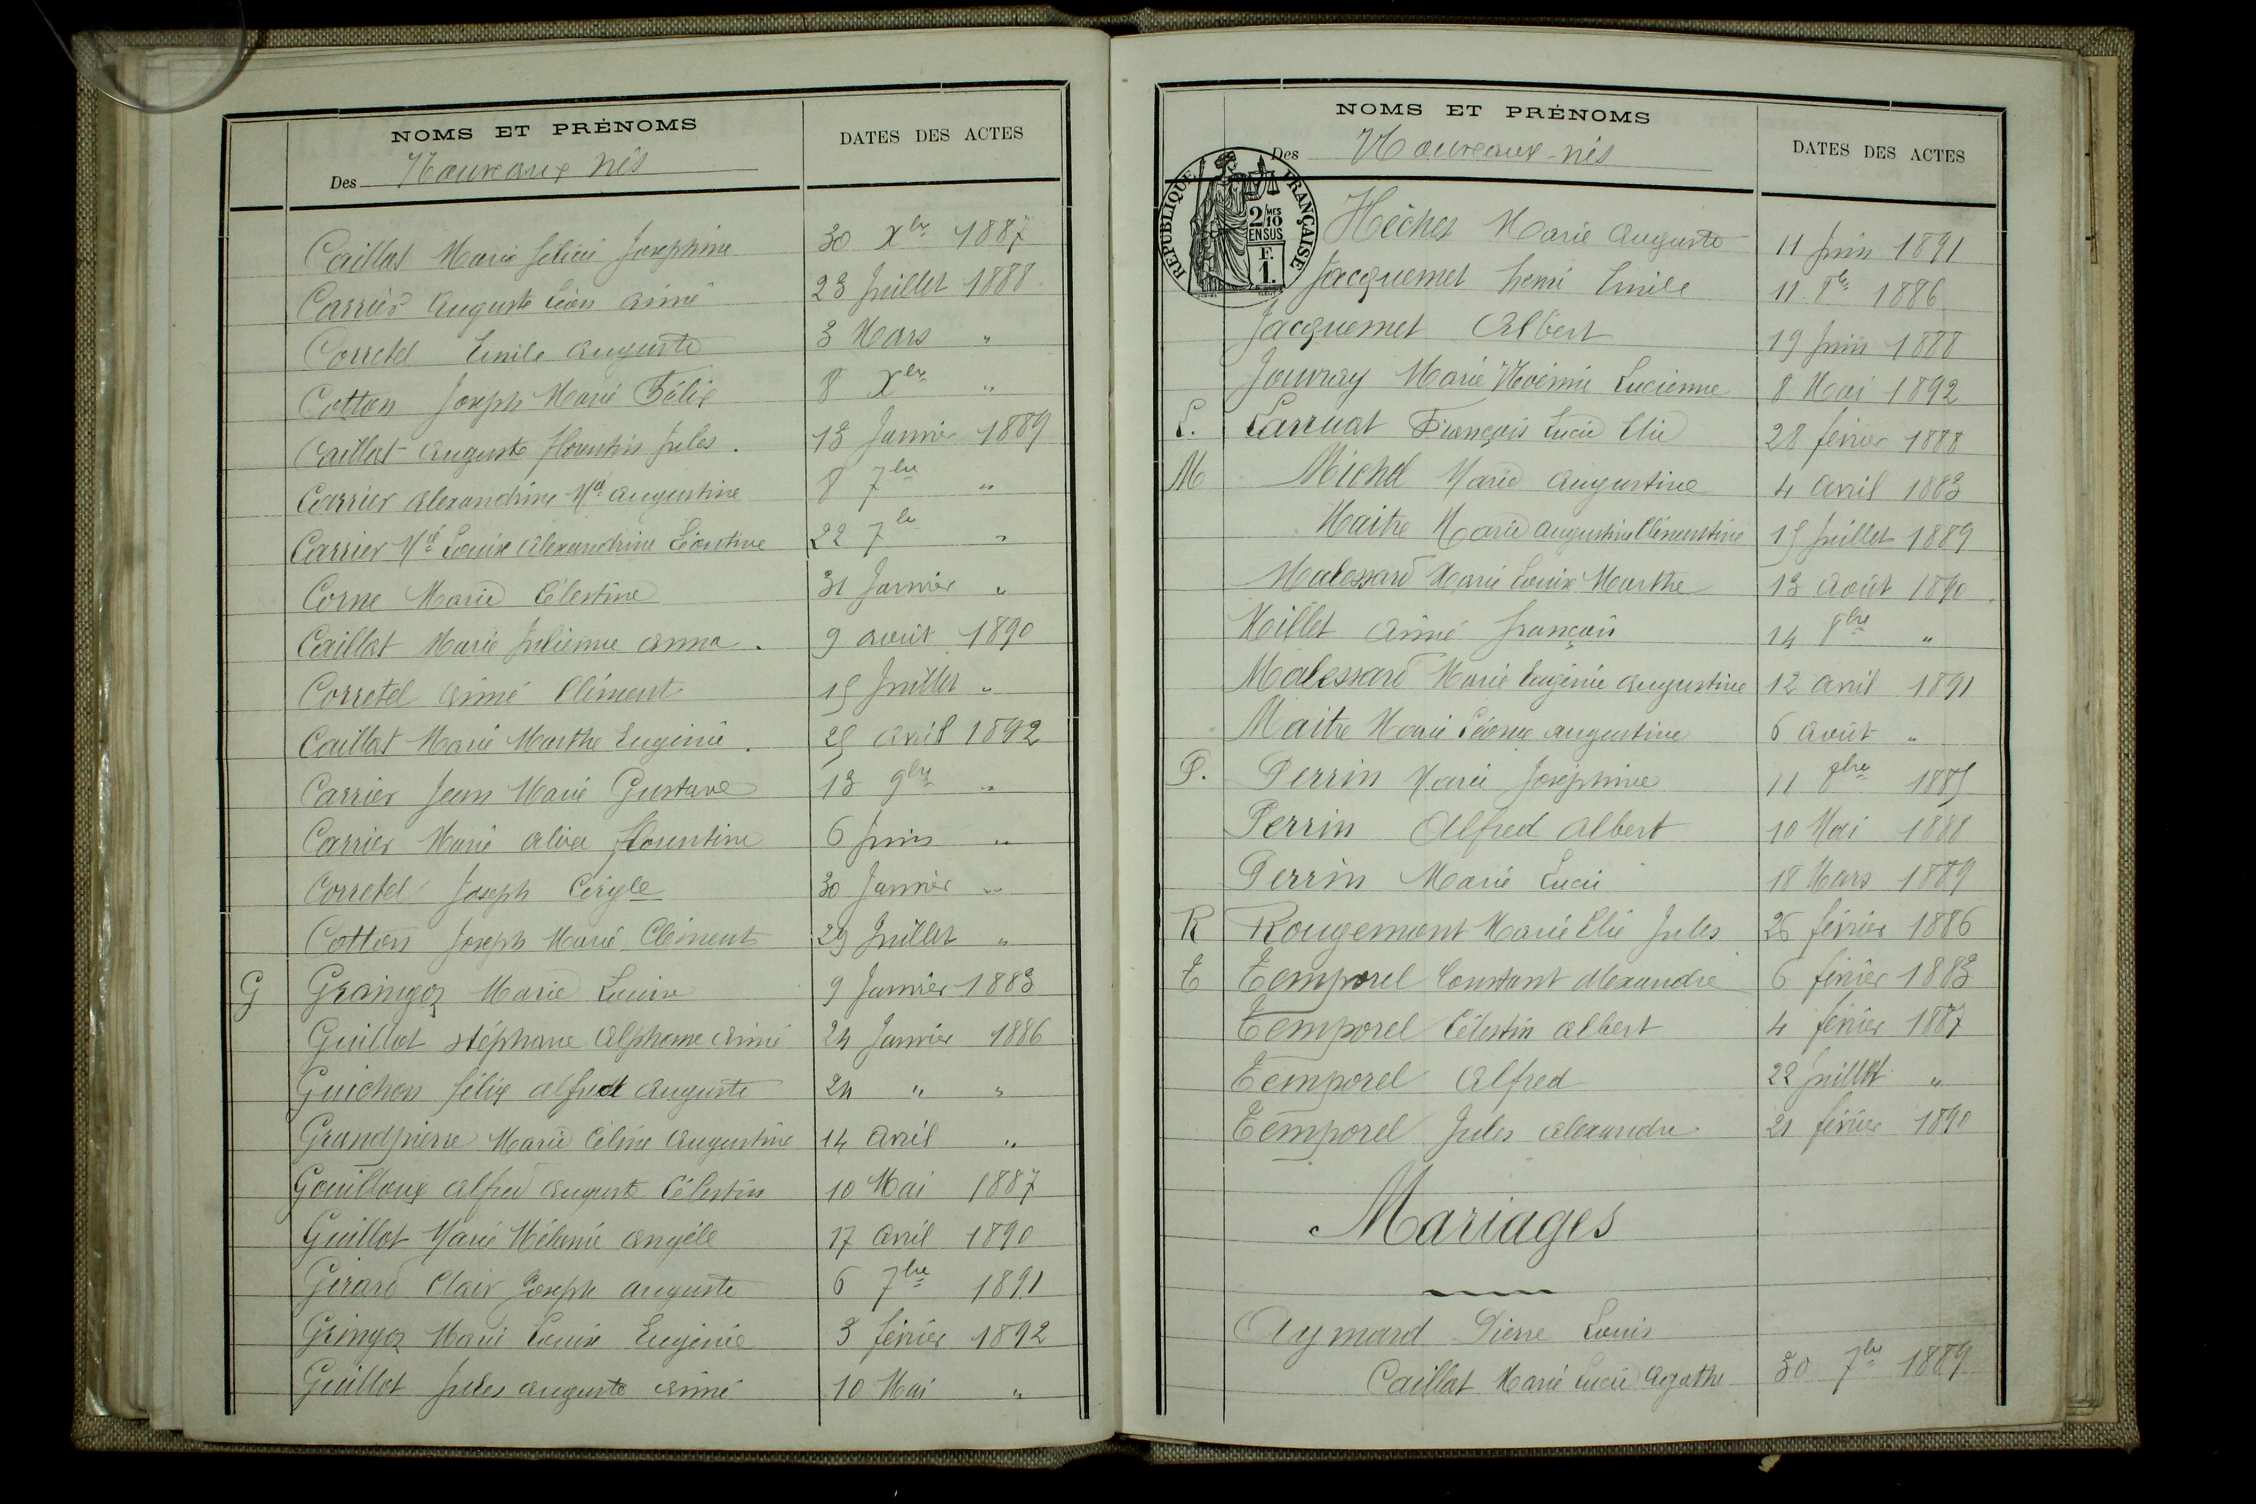 NOMS ET PRÉNOMS
DATES DES ACTES
Des Nouveaux nés
Caillat Marie Félicie Joséphine 30 Xbre 1887
Carrier Auguste Léon Aimé 23 Juillet 1888
Corretel Emile Auguste 3 Mars "
Cotton Joseph Marie Félix 8 Xbre "
Caillat Auguste Florentin Jules. 13 Janvier 1889
Carrier Alexandrine Mie Augustine 8 7bre "
Carrier Mie Louise Alexandrine Léontine 22 7bre "
Corne Marie Célestine 31 Janvier "
Caillat Marie Julienne Anna. 9 août 1890
Corretel Aimé Clément 15 Juillet "
Caillat Marie Marthe Eugénie. 25 Avril 1892
Carrier Jean Marie Gustave 13 9bre "
Carrier Marie Alice Florentine 6 Juin "
Corretel Joseph Céryle 30 Janvier "
Cotton Joseph Marie Clément 29 Juillet "
G Graingoz Marie Louise 9 Janvier 1883
Guillot Stéphane Alphonse Aimé 24 Janvier 1886
Guichon Félix Alfred Auguste 24 " "
Grandpierre Marie Céline Augustine 14 Avril "
Gouilloux Alfred Auguste Célestin 10 Mai 1887
Guillot Marie Mélanie Angèle 17 Avril 1890
Girard Clair Joseph Auguste 6 7bre 1891
Gringoz Marie Louise Eugénie 3 février 1892
Guillot Jules Auguste Aimé 10 Mai "
NOMS ET PRÉNOMS
DATES DES ACTES
Des Nouveaux-nés
RÉPUBLIQUE FRANÇAISE
2/10 MES
EN SUS
F.
1.
Héches Marie Auguste 11 Juin 1891
Jacquemet Henri Emile 11 8bre 1886
Jacquemet Albert 19 Juin 1888
Jouvray Marie Noémie Lucienne 8 Mai 1892
L. Larruat François Lucie Elie 28 février 1888
M Michel Marie Augustine 4 Avril 1883
Maitre Marie Augustine Clémentine 15 Juillet 1889
Malessard Marie Louise Marthe 13 Août 1890.
Millet Aimé François 14 8bre "
Malessard Marie Eugénie Augustine 12 Avril 1891
Maitre Marie Léonie Augustine 6 Août "
P. Perrin Marie Joséphine 11 9bre 1885
Perrin Alfred Albert 10 Mai 1888
Perrin Marie Lucie 18 Mars 1889
R Rougemont Marie Elie Jules 26 février 1886
T Temporel Constant Alexandre 6 février 1883
Temporel Célestin Albert 4 février 1887
Temporel Alfred 22 Juillet "
Temporel Jules Alexandre 21 février 1890
Mariages
Aymard Pierre Louis
Caillat Marie Lucie Agathe 30 7bre 1889